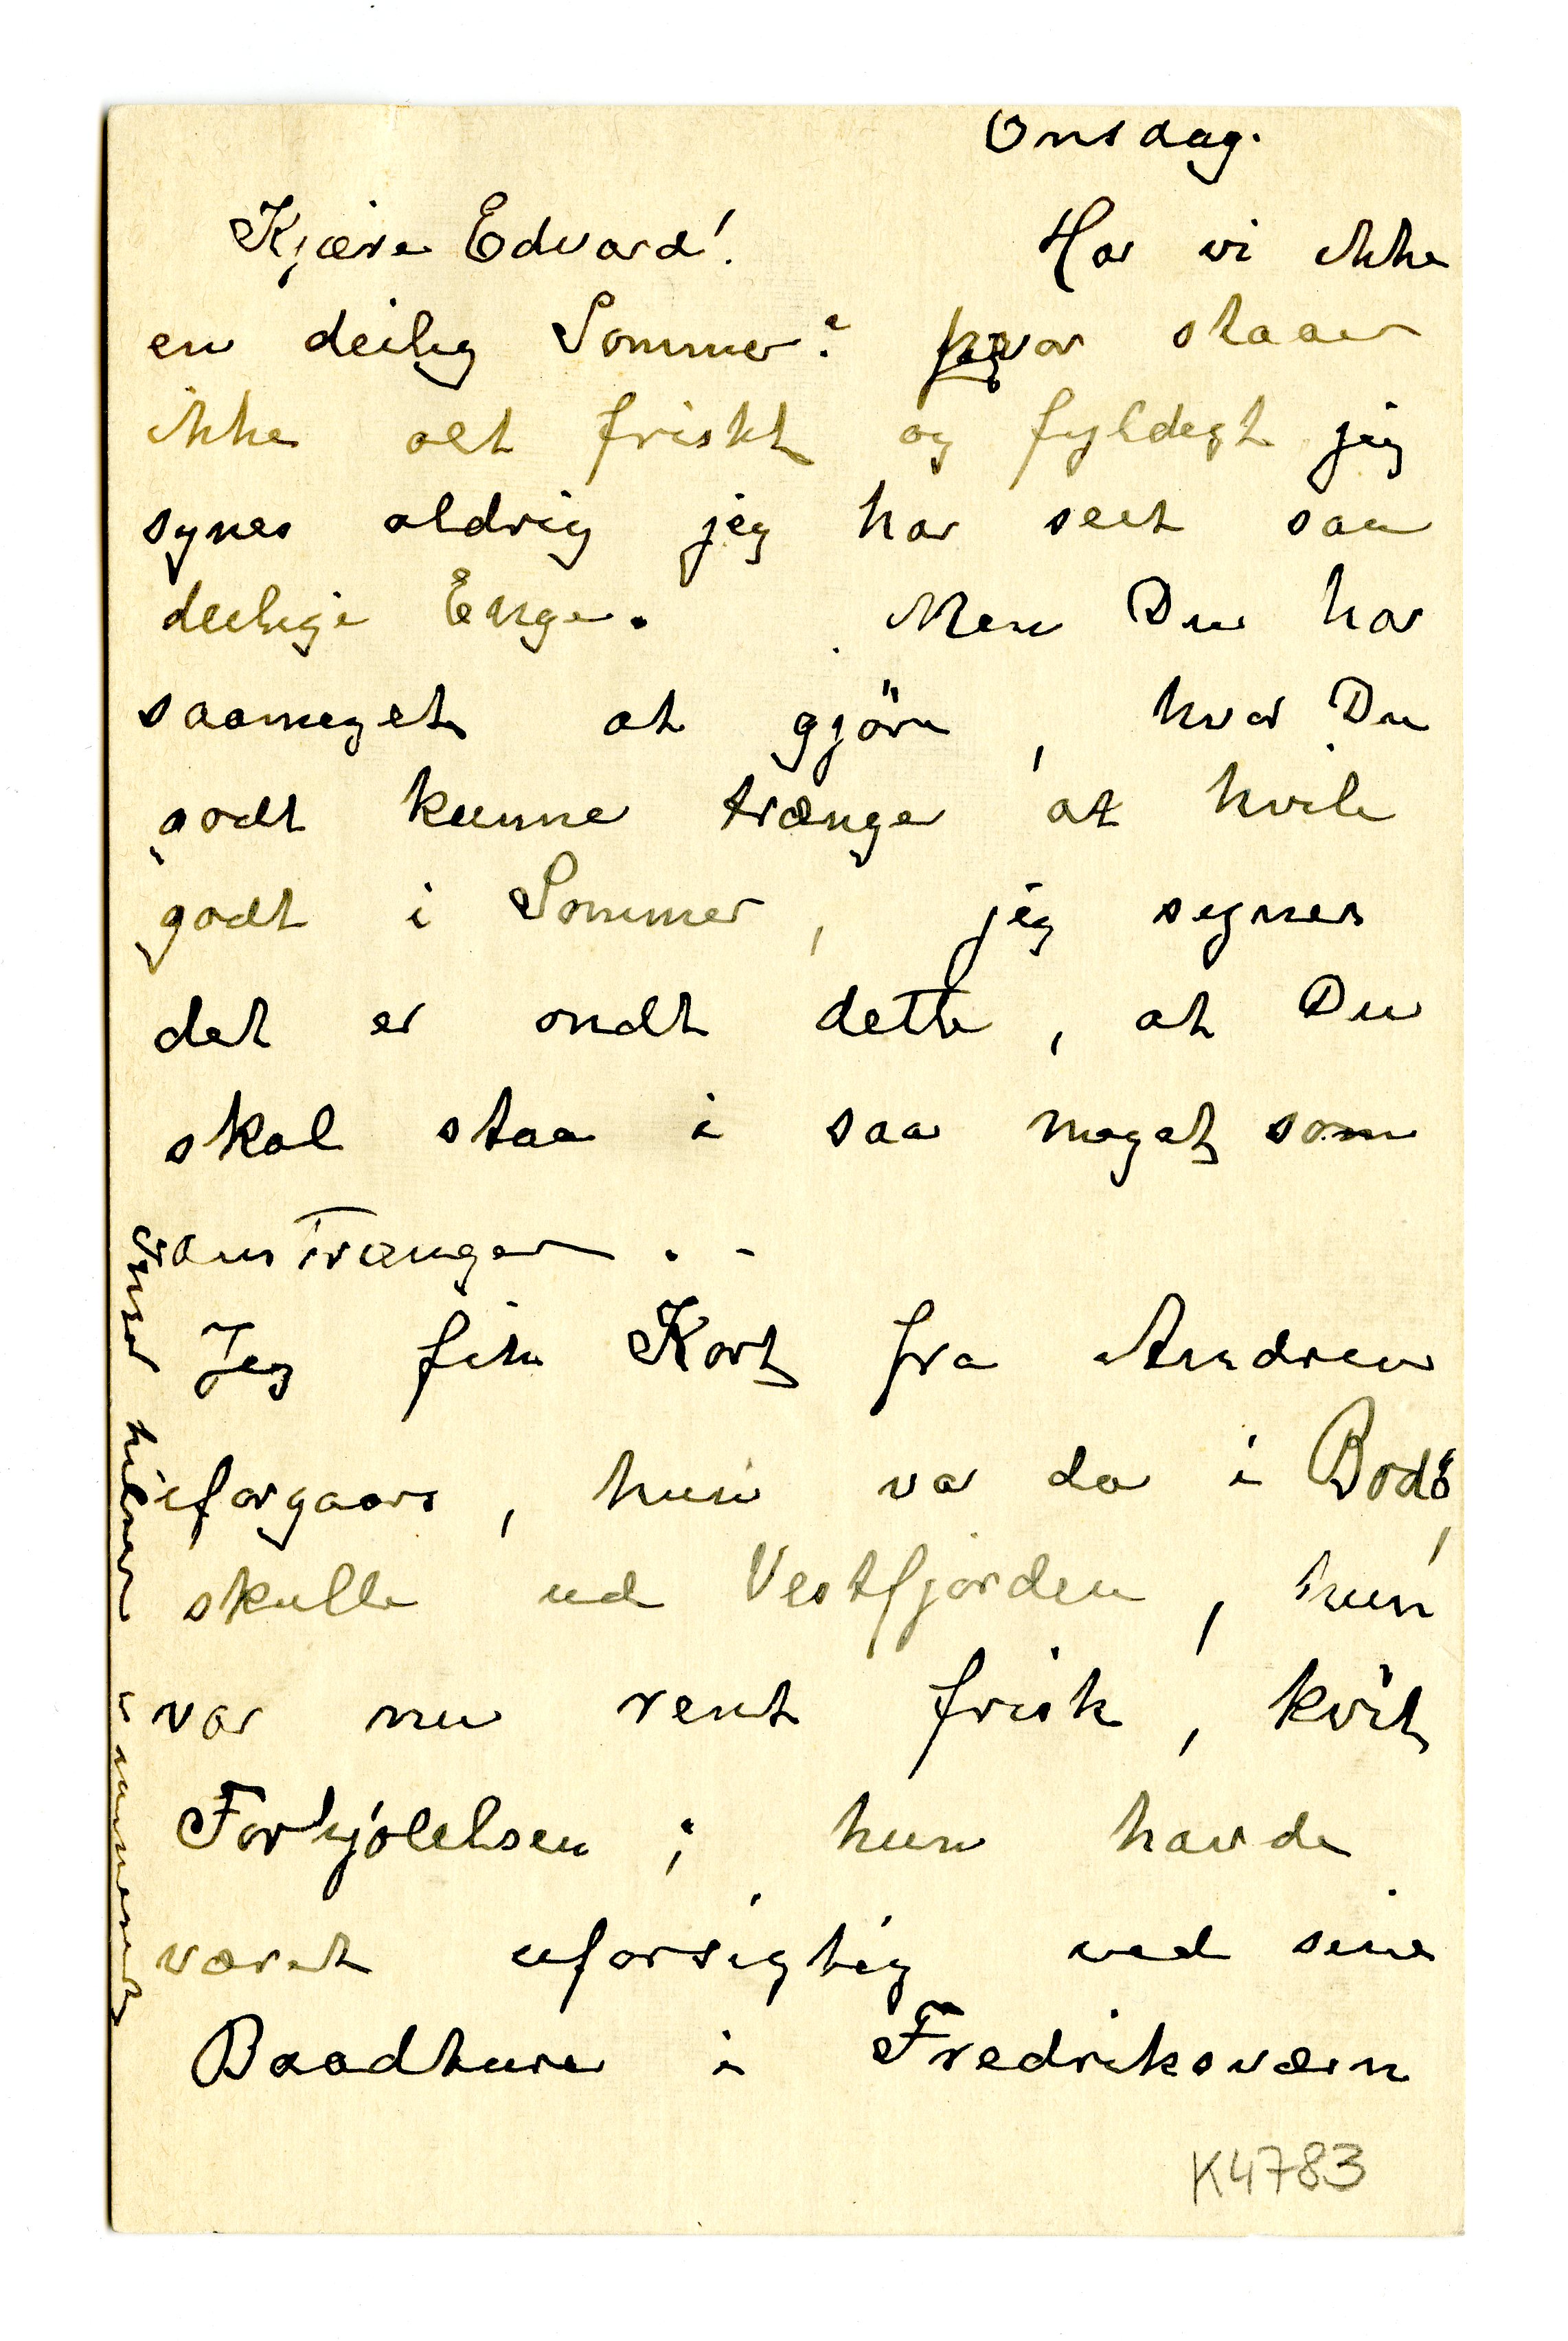 Onsdag.
Kjære Edvard! Har vi ikke
en deilig Sommer? hvor staar
ikke alt friskt og fyldigt jeg
synes aldrig jeg har seet saa
deilige Enge. Men Du har
saameget at gjöre, hvor Du
godt kunne trænge at hvile
godt i Sommer, jeg synes
det er ondt dette, at Du
skal staa i saa meget som
anstrænger. -
Jeg fik Kort fra Andrea
iforgaars, hun var da i Bodö,
skulle ud Vestfjorden, hun
var nu rent frisk, kvit
Forkjölelsen; hun havde
været uforsigtig ved sine
Baadture i Fredriksværn
hilser
K4783